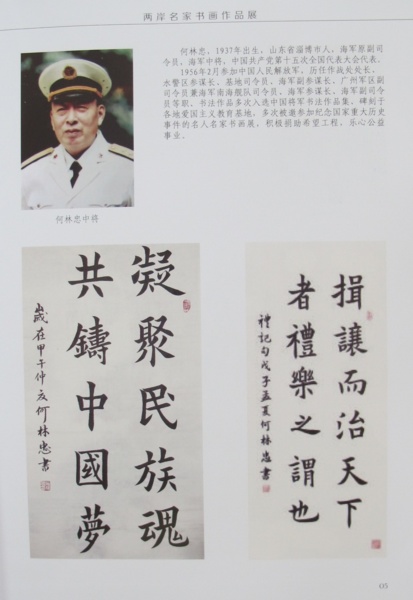 两岸名家书画作品展
何林忠，1937年出生，山东省淄博市人，海军原副司
令员，海军中将，中国共产党第十五次全国代表大会代表。
1956年2月参加中国人民解放军，历任作战处处长、
水警区参谋长、基地司令员、海军副参谋长、广州军区副
司令员兼海军南海舰队司令员、海军参谋长、海军副司令
员等职。书法作品多次入选中国将军书法作品集，碑刻于
各地爱国主义教育基地，多次被邀参加纪念国家重大历史
事件的名人名家书画展，积极捐助希望工程，乐心公益
事业。
何林忠中将
凝聚民族魂
共鑄中國夢
歲在甲午仲亥何林忠書
揖讓而治天下
者禮樂之謂也
禮記句戊子孟夏何林忠書
05